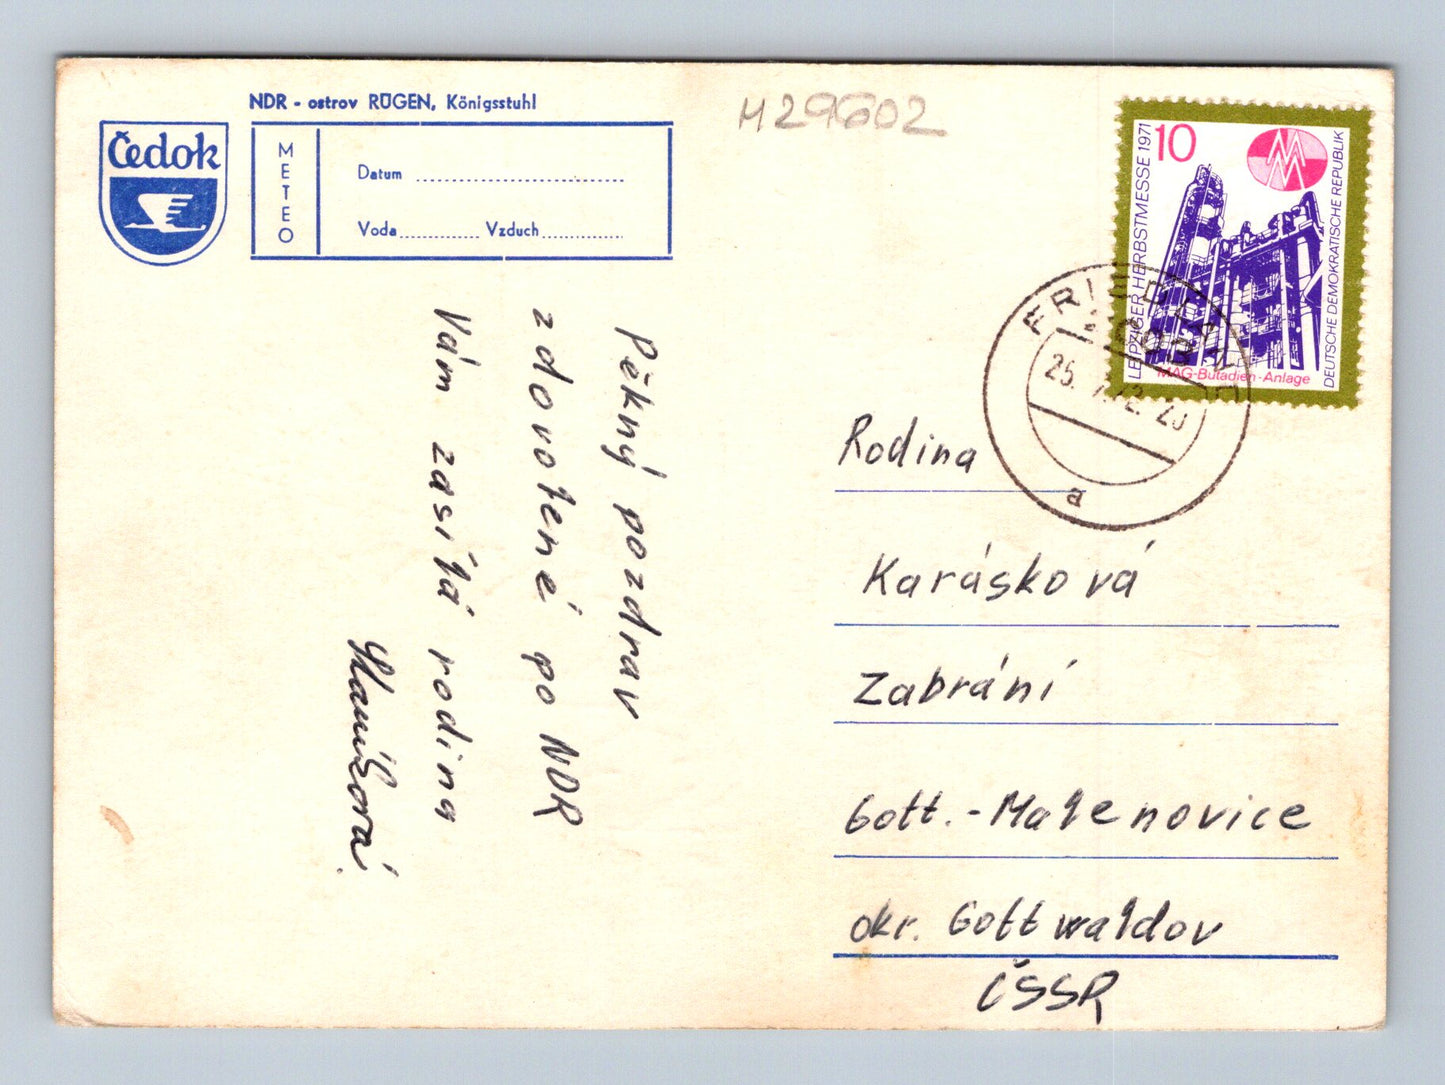 NDR - ostrov RÜGEN, Königsstuhl
Čedok
METEO
Datum
Voda Vzduch
M 29602
LEIPZIGER HERBSTMESSE 1971
10
MM
DEUTSCHE DEMOKRATISCHE REPUBLIK
MAG-Butadien-Anlage
25. 7.72-20
a
Pěkný pozdrav
z dovolené po NDR
Vám zasílá rodina
Rodina
Karásková
Zabrání
Gott. - Malenovice
okr. Gottwaldov
ČSSR